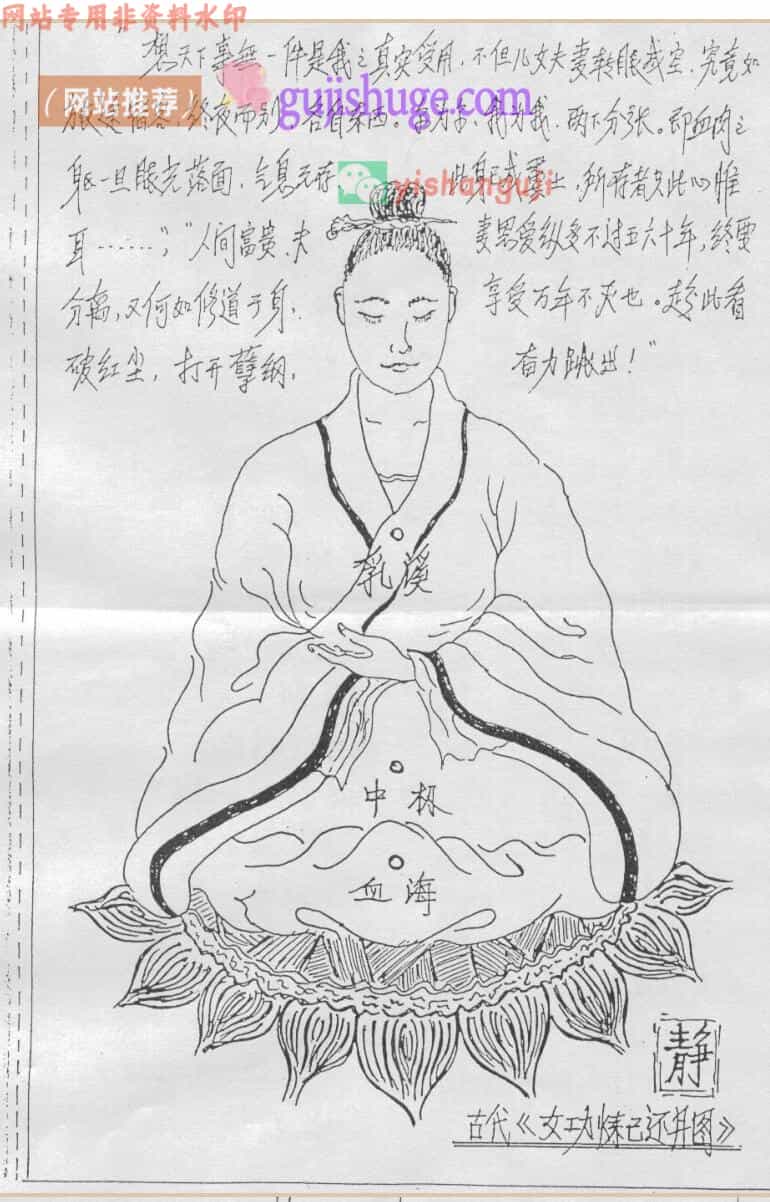 网站专用非资料水印
"想天下事無一件是我之真实受用，不但儿女夫妻转眼成空，究竟如
（网站推荐）
gujishuge.com
终夜而别 各自东西。 我为我，两下分张。即血肉之
身一旦眼光落面，气息无存 此身已成粪土，所存者只此心惟
yishanguji
耳……"，"人间富贵，夫 妻恩爱纵多不过五六十年，终要
分离，又何如修道于身， 享受万年不灭也。趁此看
破红尘，打开孽纲， 奋力跳出！"
乳溪
中极
血海
靜
古代《女功炼己还丹图》